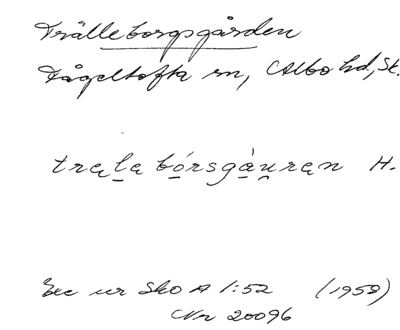 Trälleborgsgården
Fågeltofta sn, Albo hd, Sk.
tralabórsgàuran H.
Exc ur Sko A 1:52 (1958)
Nr 20096